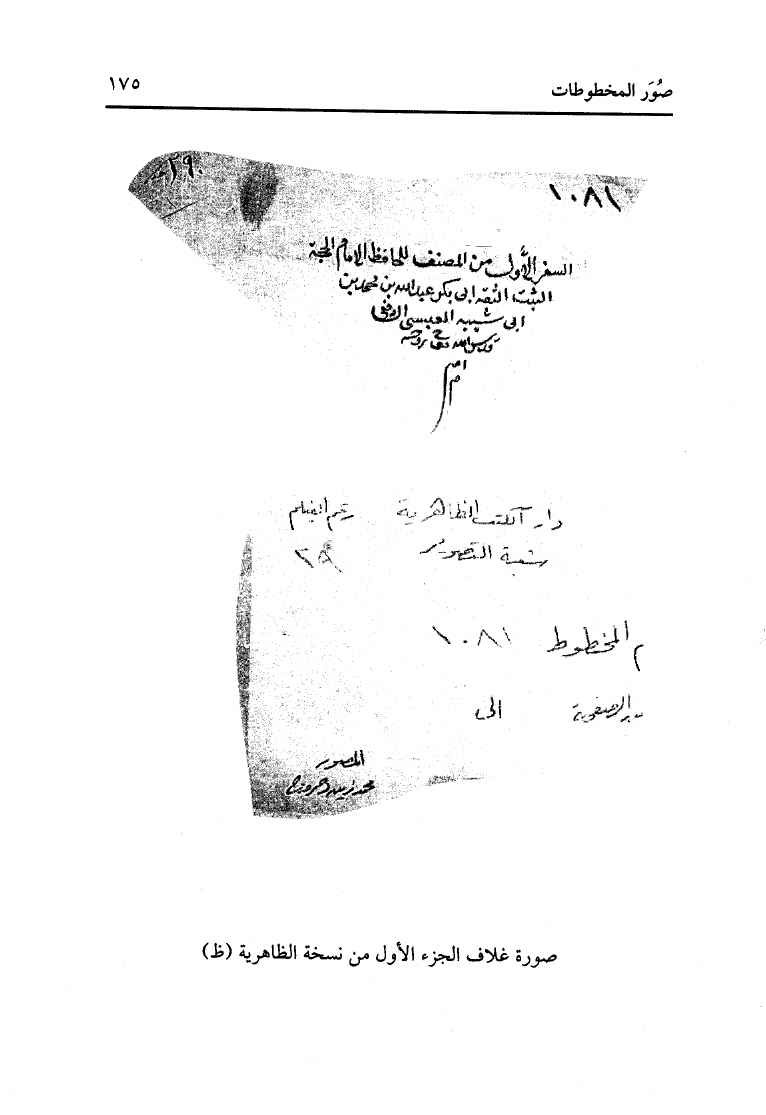 صُوَر المخطوطات ١٧٥
٢٩٠
١٠٨١
السفر الأول من المصنف للحافظ الإمام الحجة
الثبت الثقة ابى بكر عبدالله بن محمد بن
ابى شيبة العبسى الكوفى
قدس الله روحه
دار الكتب الظاهرية رقم الفيلم
شعبة التصوير ٣٩
م المخطوط ١٠٨١
الى
المصور
محمد
صورة غلاف الجزء الأول من نسخة الظاهرية (ظ)